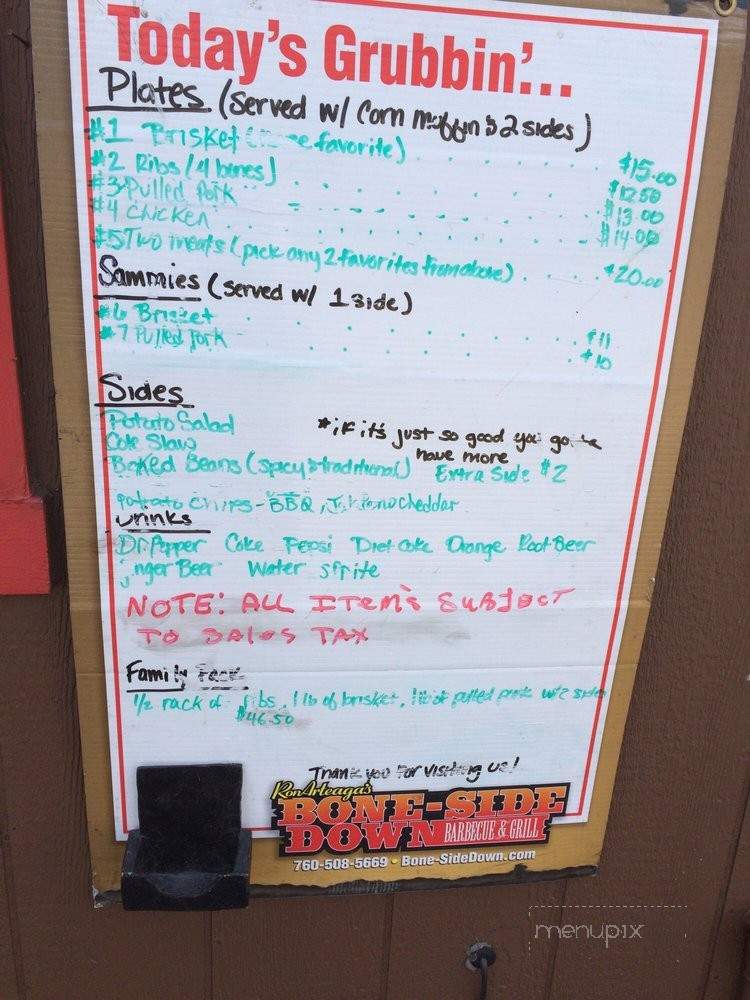 Today's Grubbin'...
Plates (served w/ Corn muffin & 2 sides)
#1 Brisket ( favorite) . . . . . $15.00
#2 Ribs (4 bones) . . . . . $12.50
#3 Pulled Pork . . . . . $13.00
#4 Chicken . . . . . $14.00
#5 Two meats (pick any 2 favorites from above) . . . $20.00
Sammies (served w/ 1 side)
#6 Brisket . . . . . $11
#7 Pulled Pork . . . . . $10
Sides
Potato Salad
Cole Slaw
*if it's just so good you
have more
Baked Beans (spicy & traditional) Extra Side $2
Potato Chips - BBQ, Cheddar
Drinks
Dr Pepper Coke Pepsi Diet Coke Orange Root Beer
inger Beer Water Sprite
NOTE: ALL ITEM'S SUBJECT
TO SALES TAX
Family Pack
1/2 rack of ribs, 1 lb of brisket, 1 lb of pulled pork w/2 sides
$46.50
Thank you for visiting us!
Ron Arteaga's
BONE-SIDE
DOWN BARBECUE & GRILL
760-508-5669 • Bone-SideDown.com
menupix